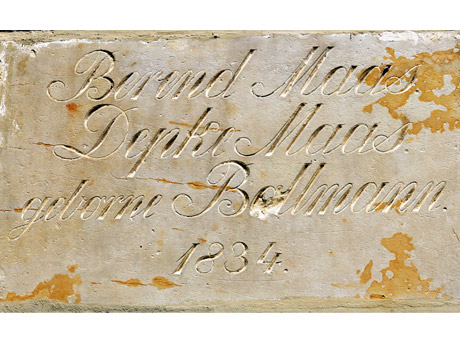 Berend Maas.
Depke Maas.
geborne Bollmann.
1834.